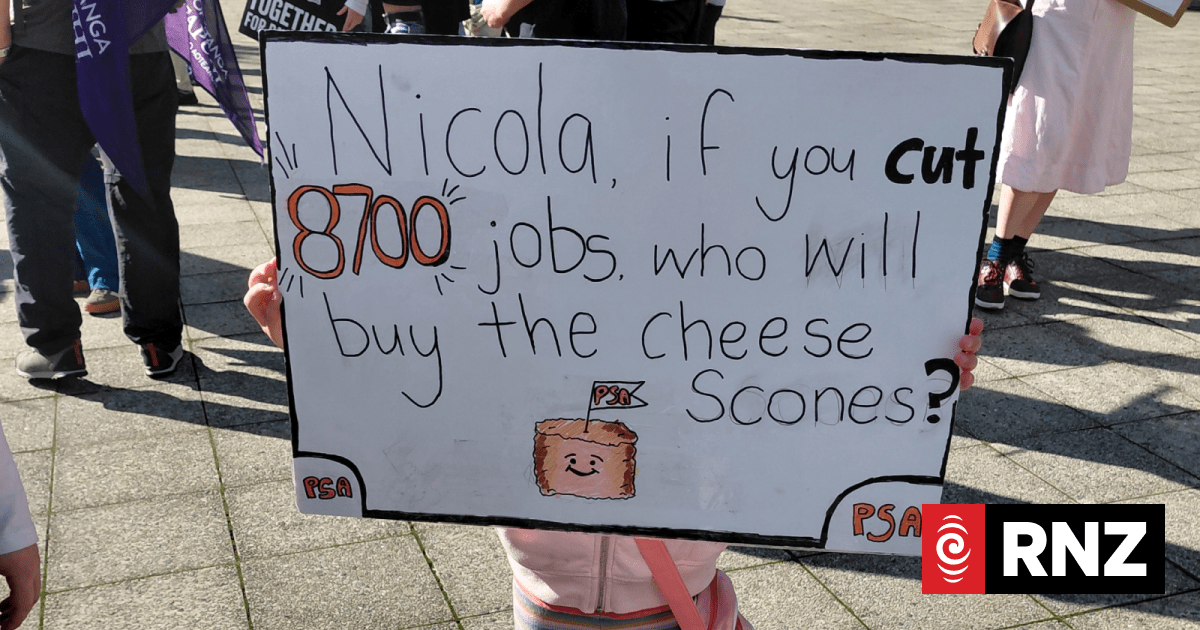 TOGETHER
FOR
Nicola, if you cut
8700 jobs, who will
buy the cheese
Scones?
PSA
PSA
PSA
RNZ